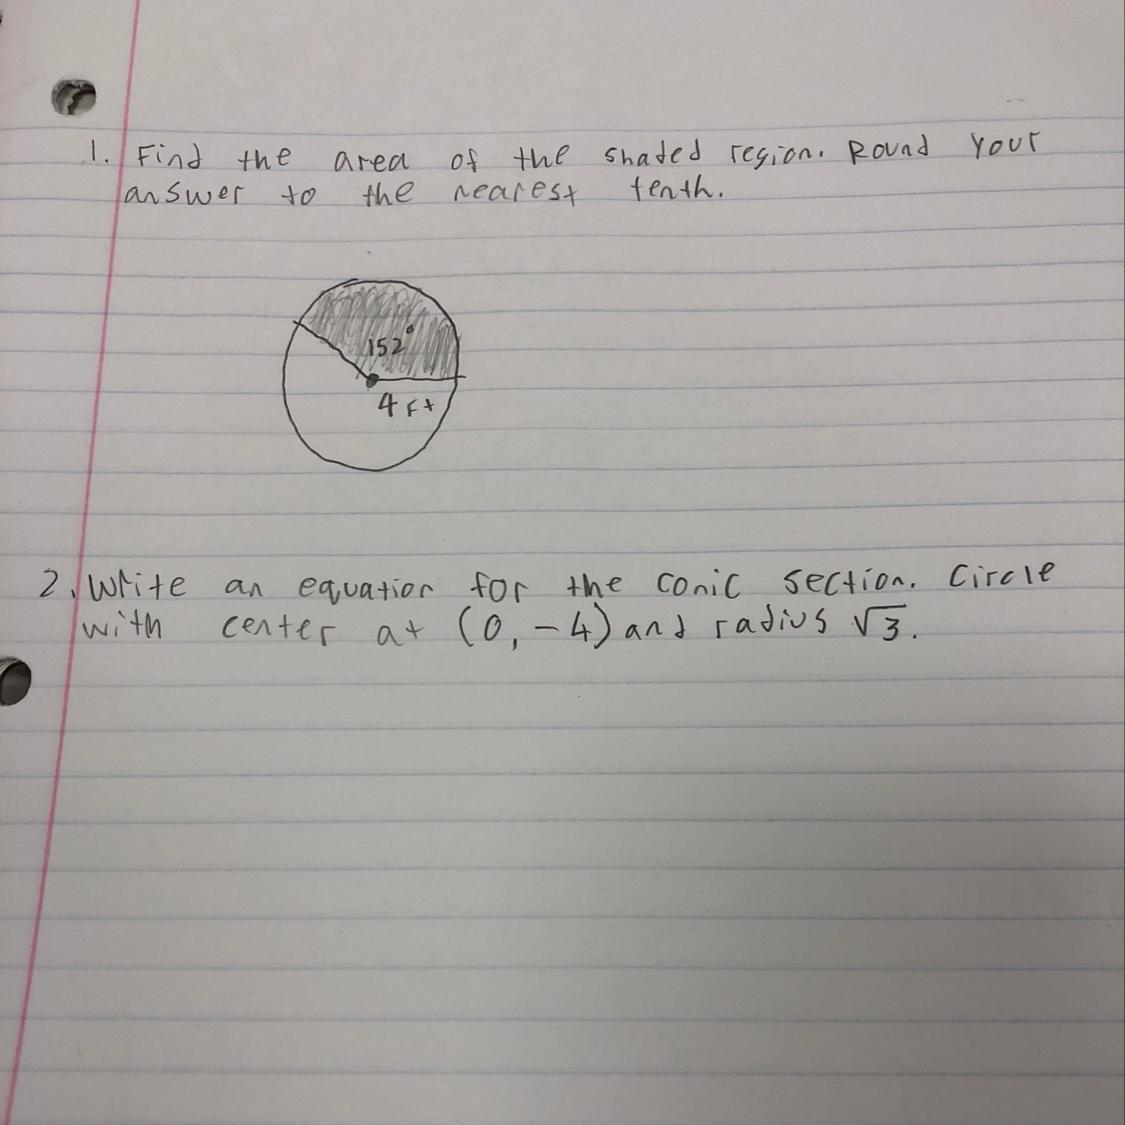 1. Find the area of the shaded region. Round your
answer to the nearest tenth.
152°
4 ft
2. Write an equation for the conic section. Circle
with center at (0, -4) and radius √3.